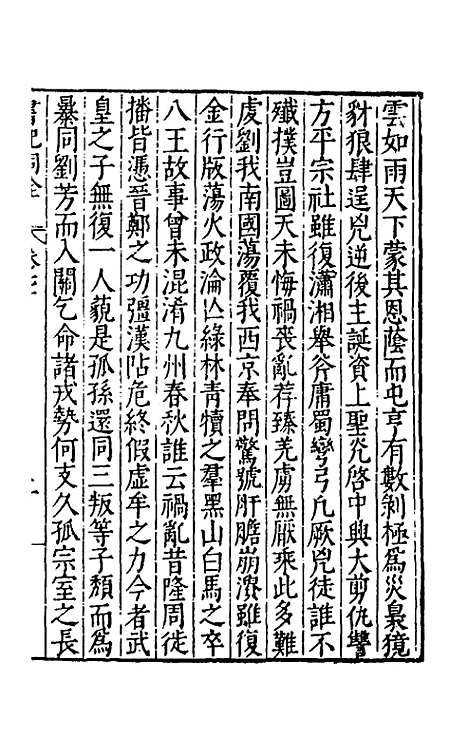 雲如雨天下蒙其恩蔭而屯亨有數剝極爲災梟獍
豺狼肆逞兇逆後主誕資上聖光啓中興大剪仇讐
方平宗社雖復瀟湘舉斧庸蜀彎弓凡厥兇徒誰不
殲撲豈圖天未悔禍喪亂荐臻羌虜無厭乘此多難
虔劉我南國蕩覆我西京奉問驚號肝膽崩潰雖復
金行版蕩火政淪亡緑林青犢之羣黑山白馬之卒
八王故事曾未混淆九州春秋誰云禍亂昔隆周徙
播皆憑晉鄭之功彊漢阽危終假虚牟之力今者武
皇之子無復一人藐是孤孫還同三叛等子頽而爲
暴同劉芳而入關乞命諸戎勢何支久孤宗室之長